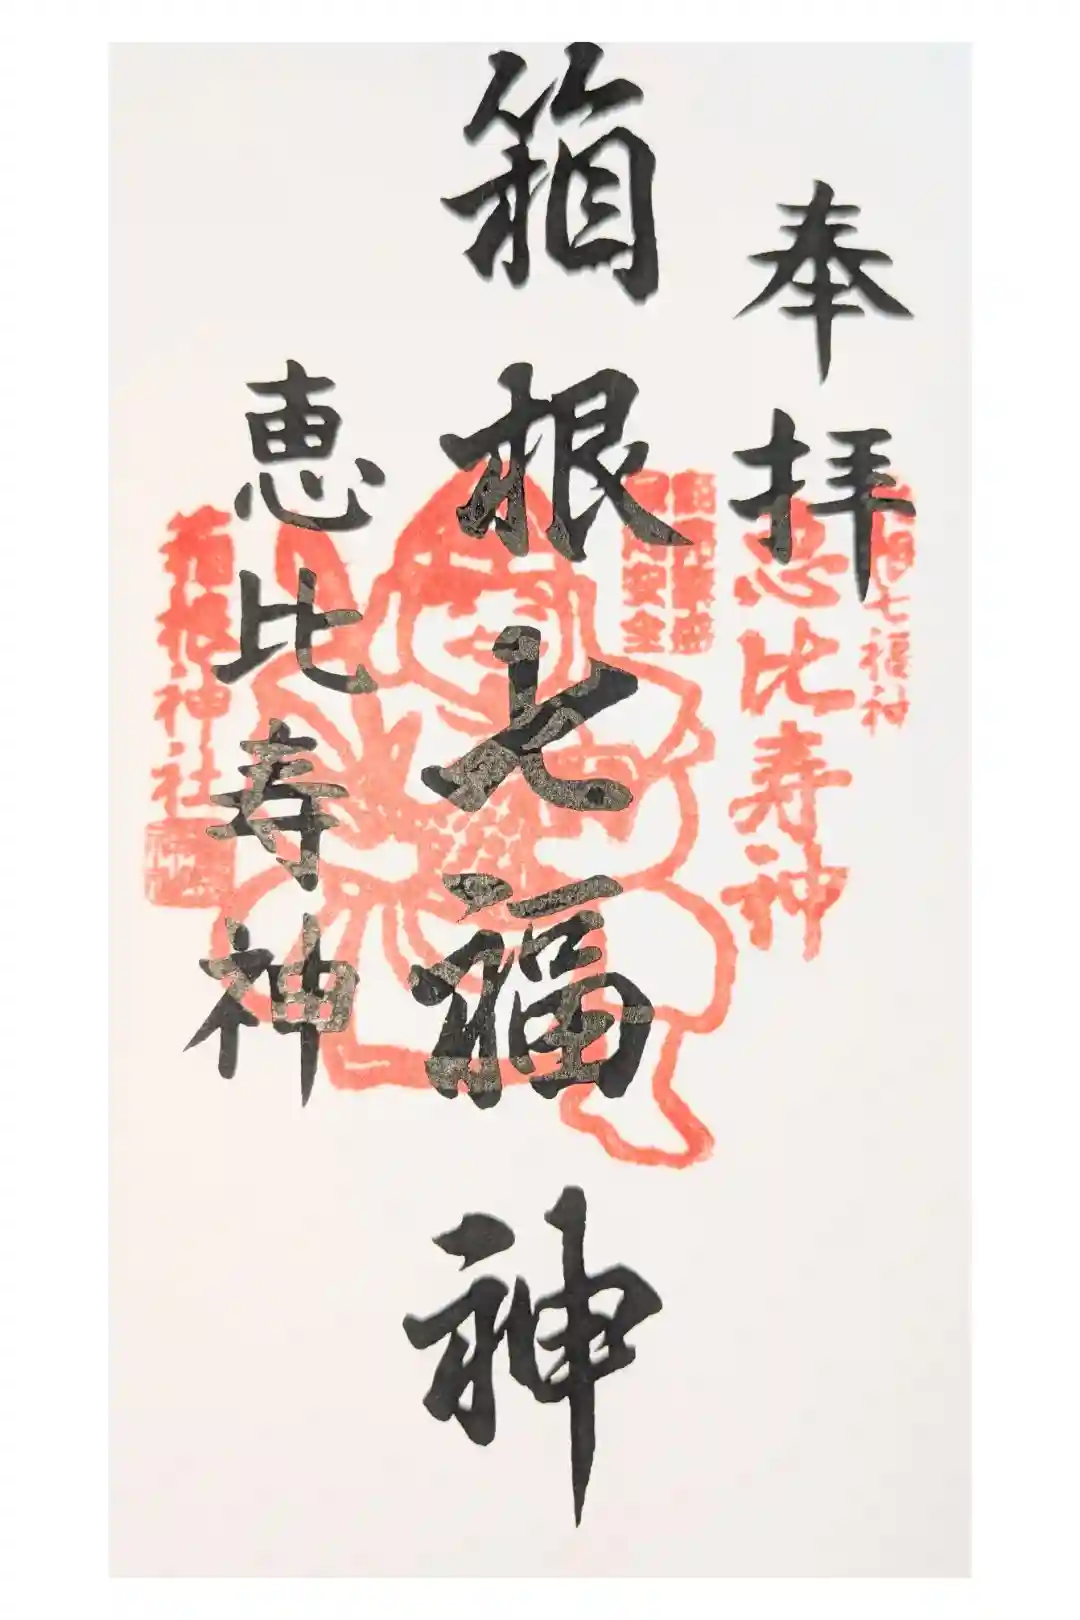 奉拝
箱根七福神
恵比寿神
七福神
恵比寿神
安全
箱根神社